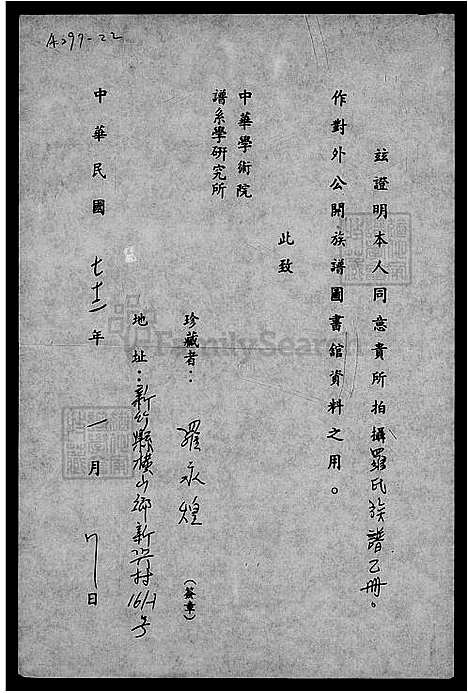 A299-22
玆證明本人同意貴所拍攝羅氏族譜乙冊。
作對外公開族譜圖書館資料之用。
此致
中華學術院
譜系學研究所
珍藏者：羅永煌（簽章）
地址：新竹縣橫山鄉新興村16-1號
中華民國七十二年一月 日
FamilySearch